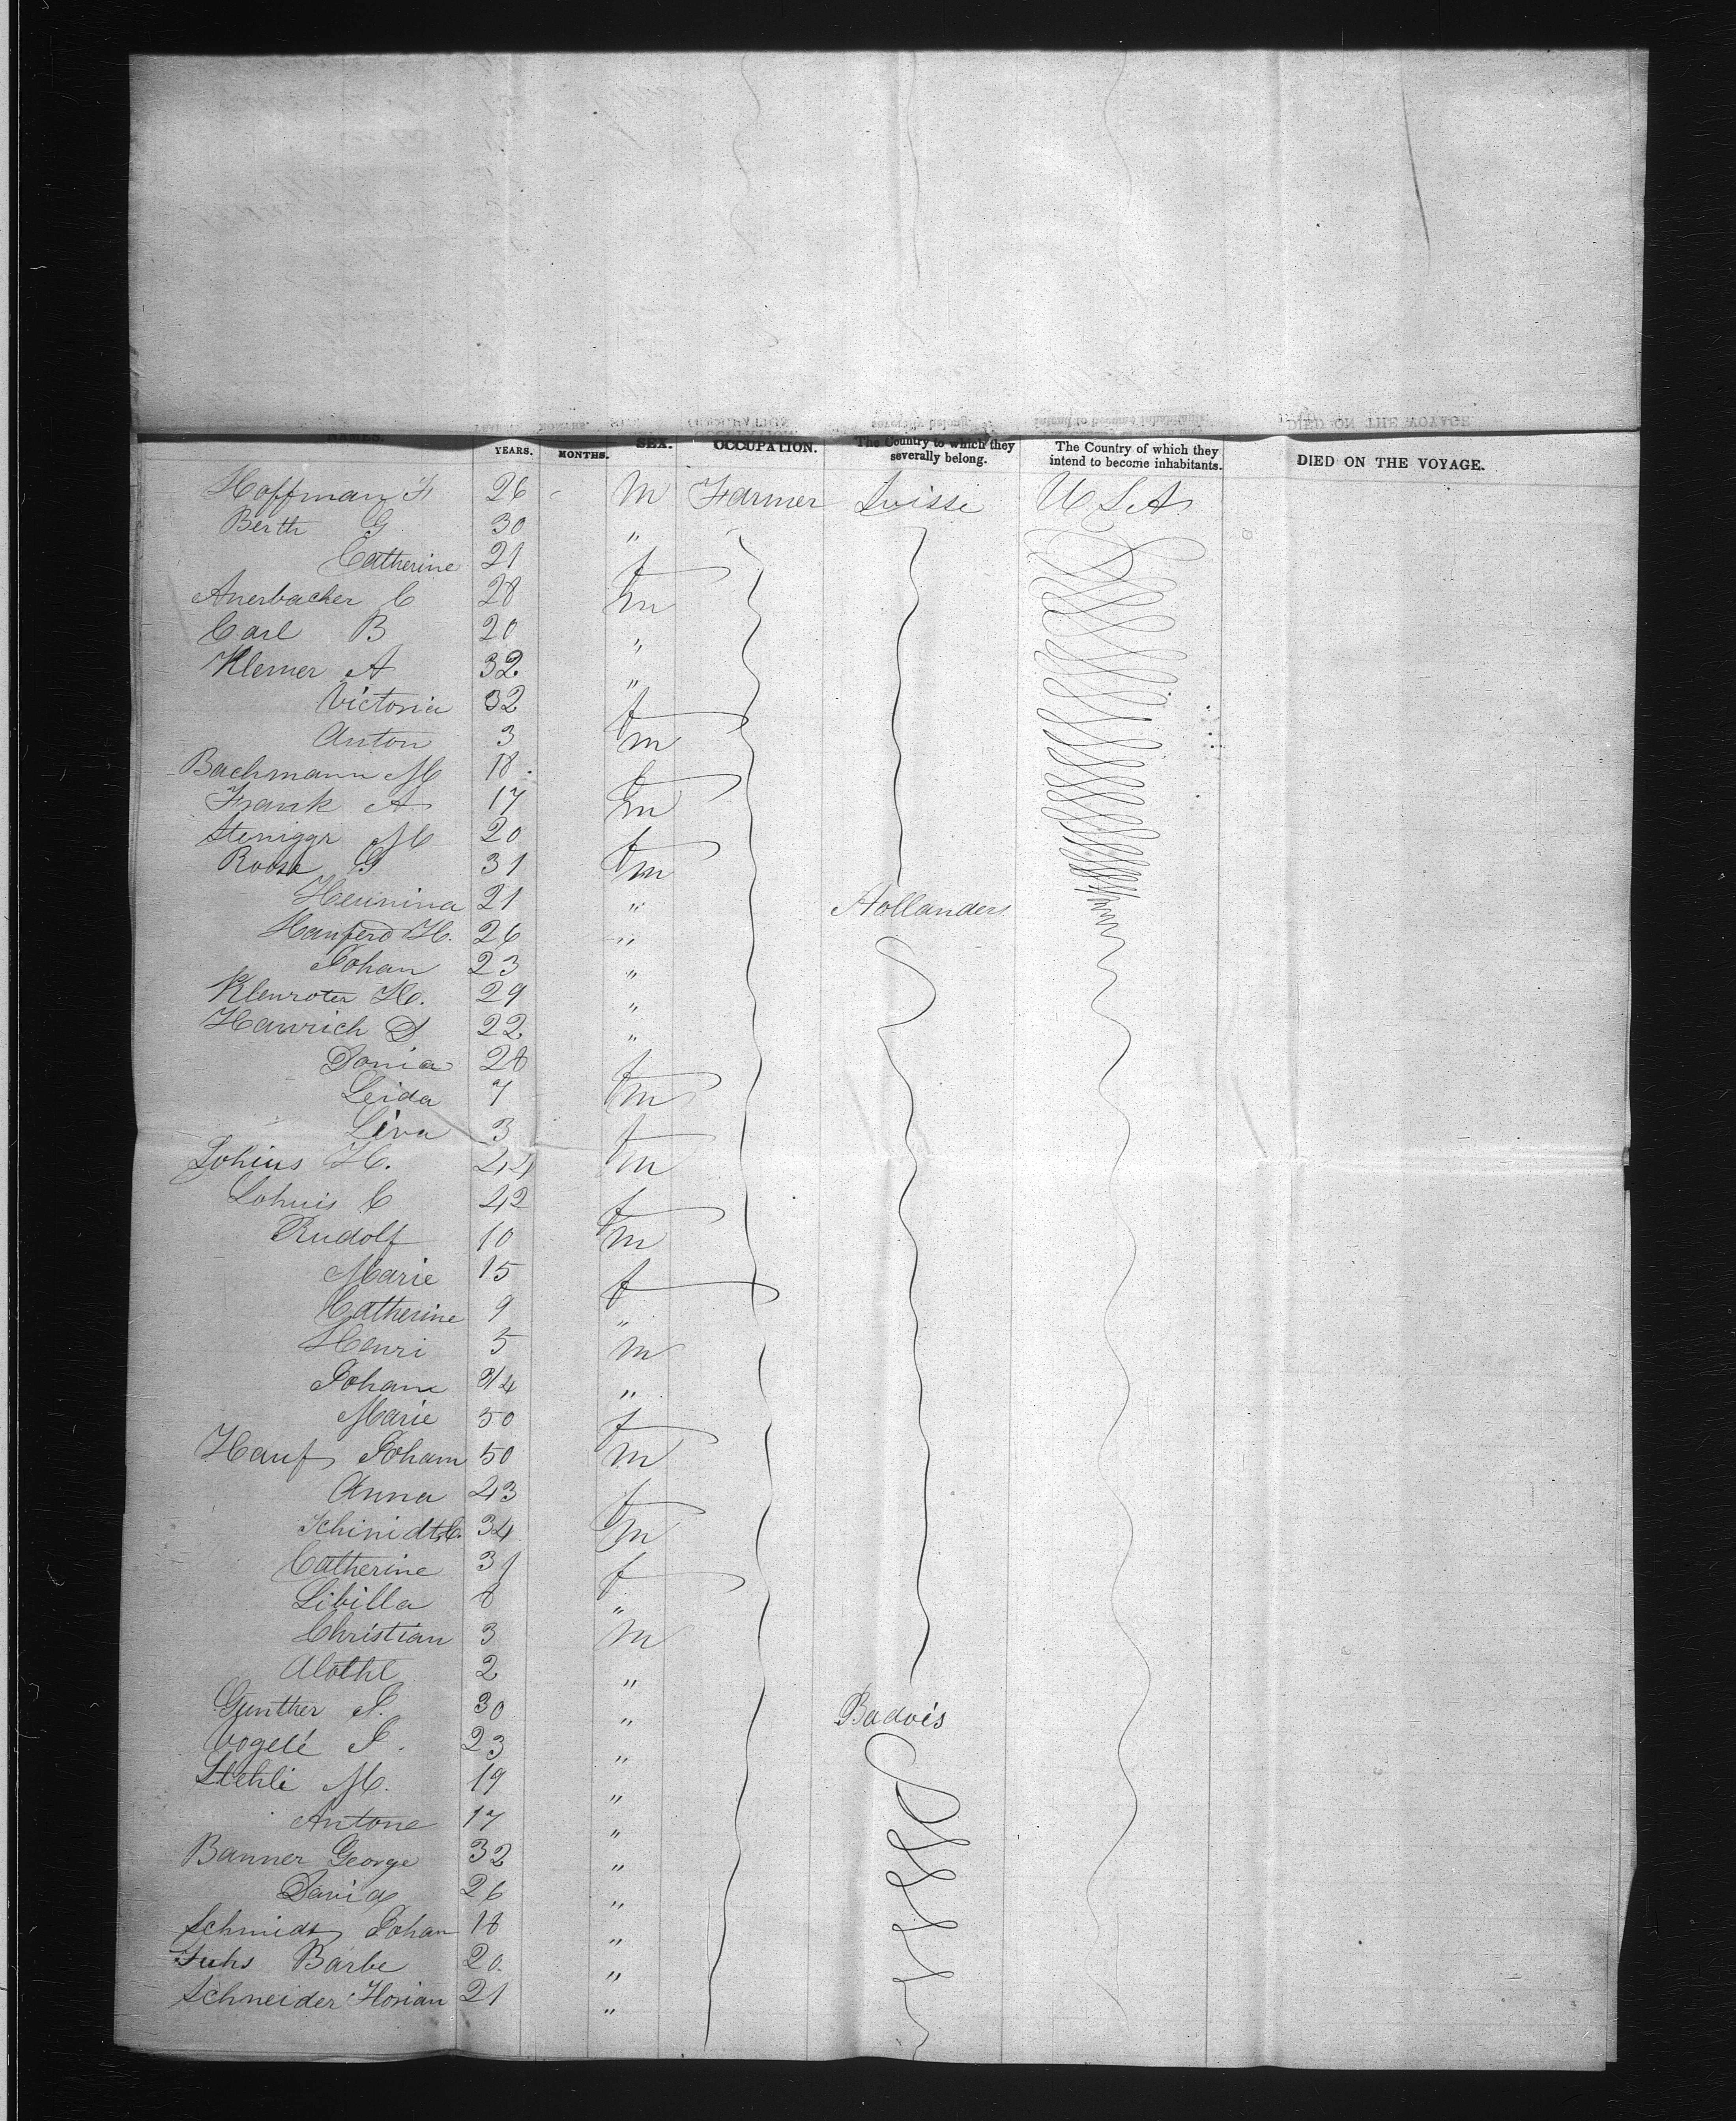 NAMES. YEARS. MONTHS. SEX. OCCUPATION. The Country to which they severally belong. The Country of which they intend to become inhabitants. DIED ON THE VOYAGE.
Hoffman F 26 M Farmer Suisse U S A
Berth G 30 "
Catherine 21 f
Auerbacher C 28 m
Carl B 20 "
Klemer A 32 "
Victoria 32 f
Anton 3 m
Bachmann M 18 f
Frank A 17 m
Steniggr M 20 f
Roosa G 31 m
Hermina 21 " Hollanders
Hanferd H. 26 "
Johan 23 "
Klenroter H. 29 "
Hanrich D 22 "
Donia 28 f
Leida 7 m
Liva 3 f
Lohius H. 44 m
Lohuis C 42 f
Rudolf 10 m
Marie 15 f
Catherine 9 "
Henri 5 m
Johann 3/4 "
Marie 50 f
Hauf Johann 50 m
Anna 43 f
Schmidt C. 34 m
Catherine 31 f
Libilla 8 "
Christian 3 m
Alothl 2 "
Gunther J. 30 " Badois
Vogelé J. 23 "
Stehlé M. 19 "
Antone 17 "
Banner George 32 "
David 26 "
Schmidt Johan 18 "
Fuhs Barbe 20. "
Schneider Florian 21 "